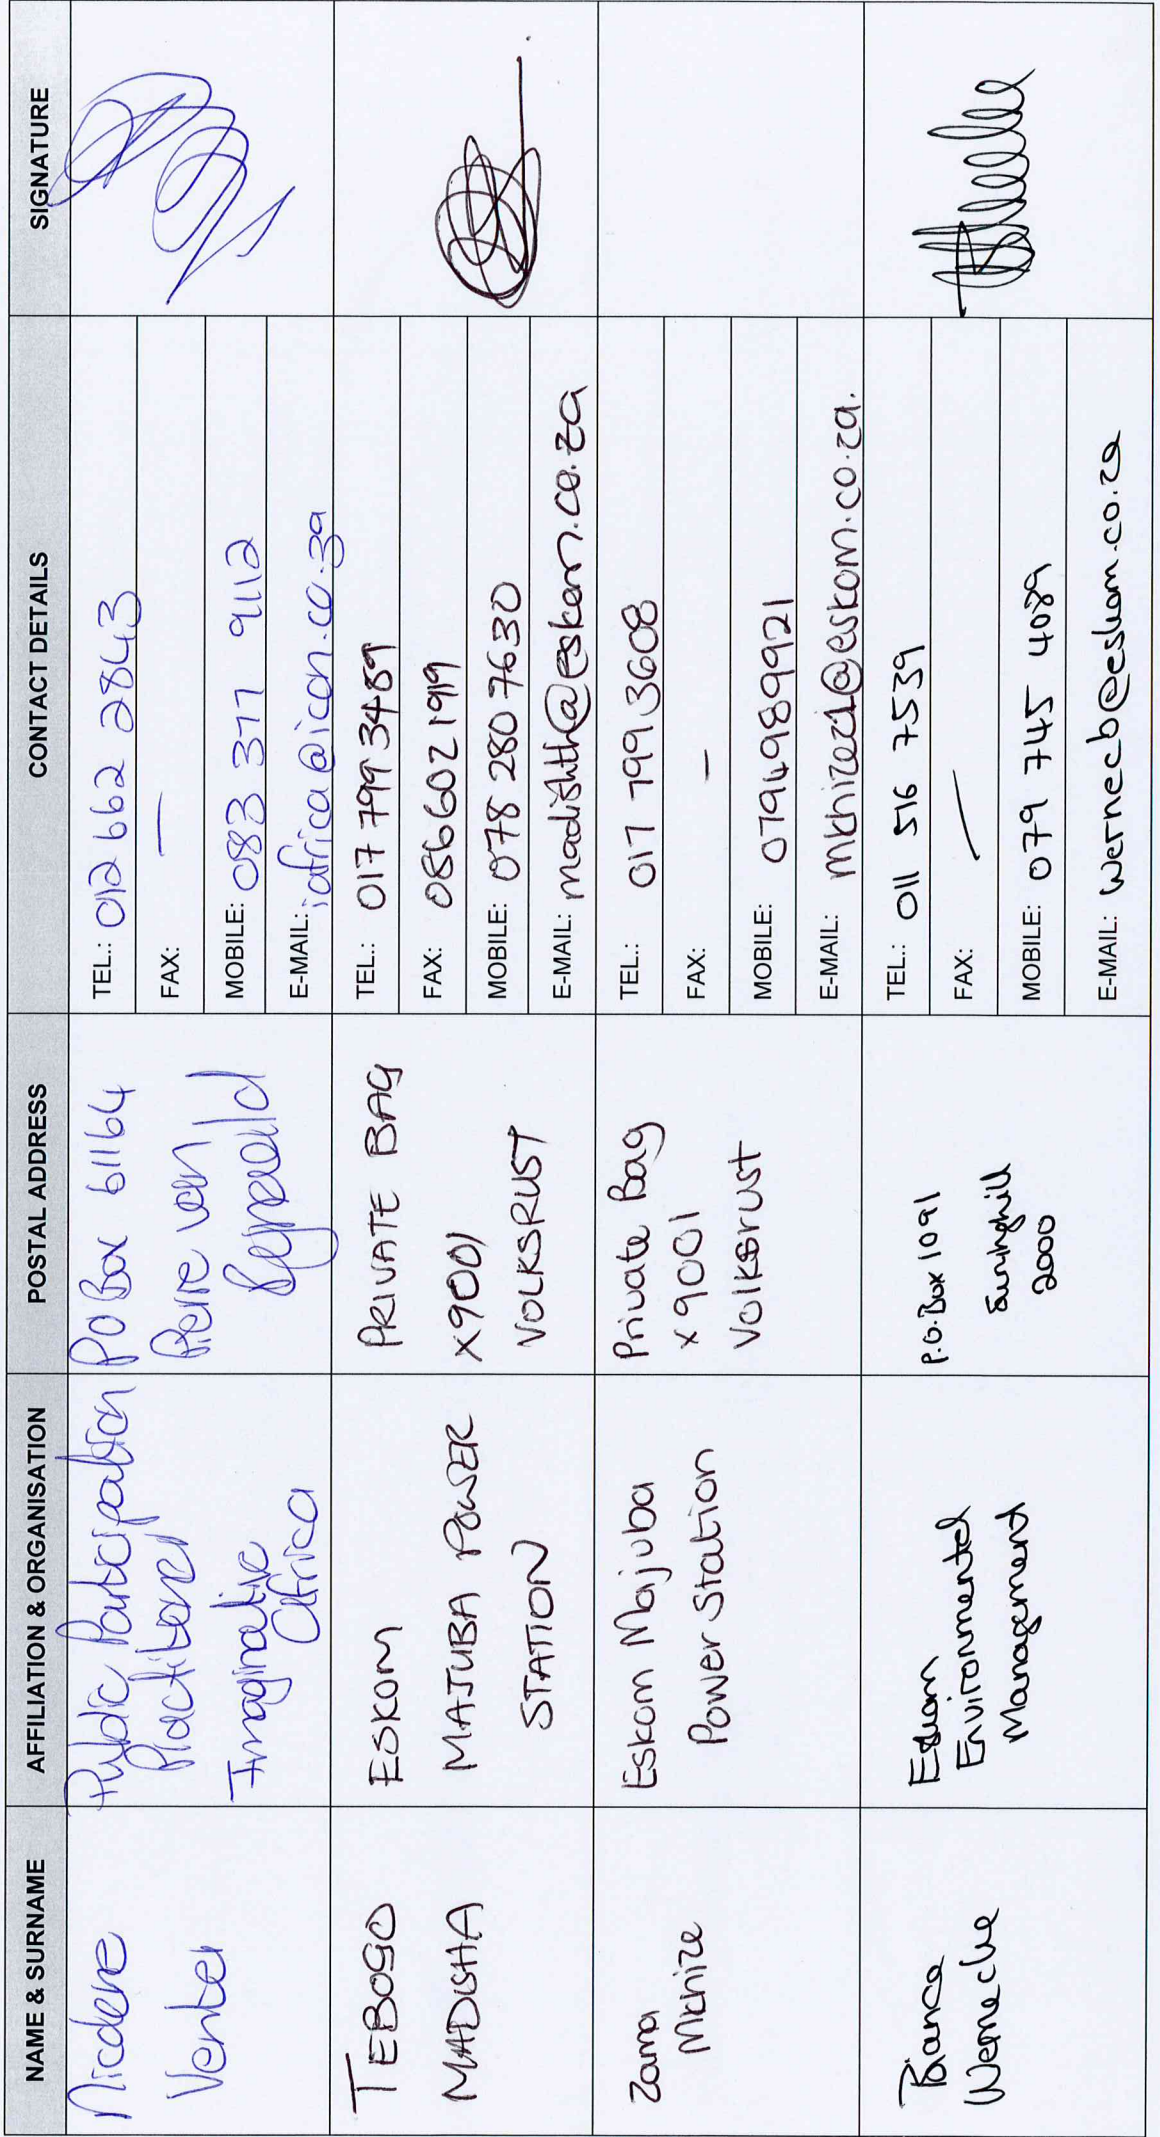 NAME & SURNAME
AFFILIATION & ORGANISATION
POSTAL ADDRESS
CONTACT DETAILS
SIGNATURE
Nicolene
Venter
Public Participation
Practitioner
Imaginative
Africa
PO Box 61164
Pierre van
Ryneveld
TEL.: 012 662 2843
FAX: —
MOBILE: 083 377 9112
E-MAIL: iafrica@icon.co.za
TEBOGO
MADISHA
ESKOM
MAJUBA POWER
STATION
PRIVATE BAG
X9001
VOLKSRUST
TEL.: 017 799 3489
FAX: 086 602 1919
MOBILE: 078 280 7630
E-MAIL: madishth@eskom.co.za
Zama
Mkhize
Eskom Majuba
Power Station
Private Bag
X9001
Volksrust
TEL.: 017 799 3608
FAX: —
MOBILE: 0794989921
E-MAIL: @eskom.co.za.
Bianca
Wernecke
Eskom
Environmental
Management
P.O. Box 1091
Sunninghill
2000
TEL.: 011 516 7539
FAX: —
MOBILE: 079 745 4089
E-MAIL: Wernecb@eskom.co.za